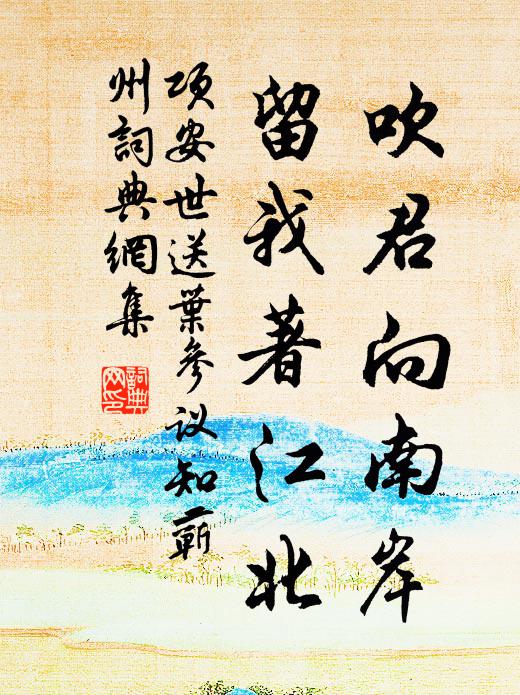 吹君向南岸
留我著江北
项安世送葉參议知蘄
州詞典網集
詞典網印